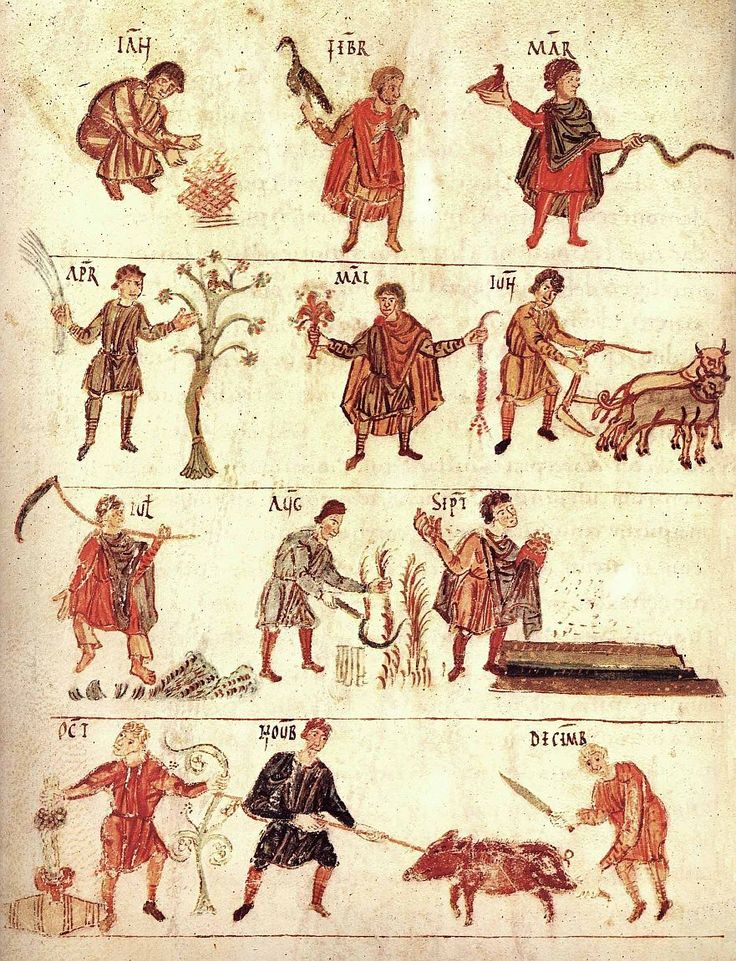 IAН
FEBR
MAR
APR
MAI
IUН
IUL
AUG
SEPT
OCT
НOUB
DECEMB